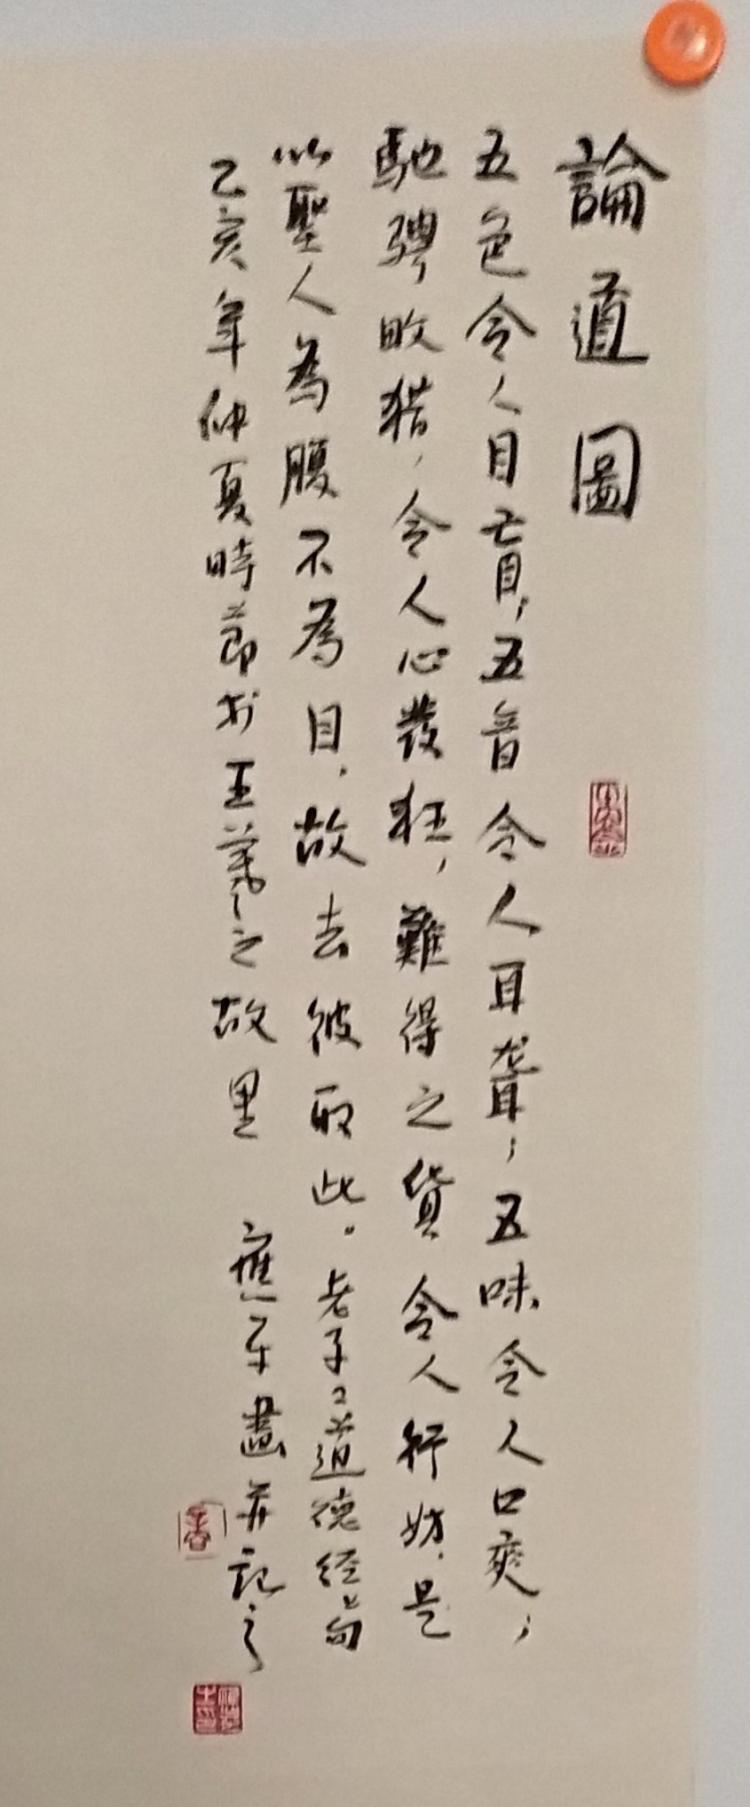 論道圖
五色令人目盲；五音令人耳聾；五味令人口爽；
馳騁畋猎，令人心發狂，難得之貨令人行妨，是
以聖人為腹不為目，故去彼取此。老子道德经句
乙亥年仲夏時節於王羲之故里 應平畫并記之